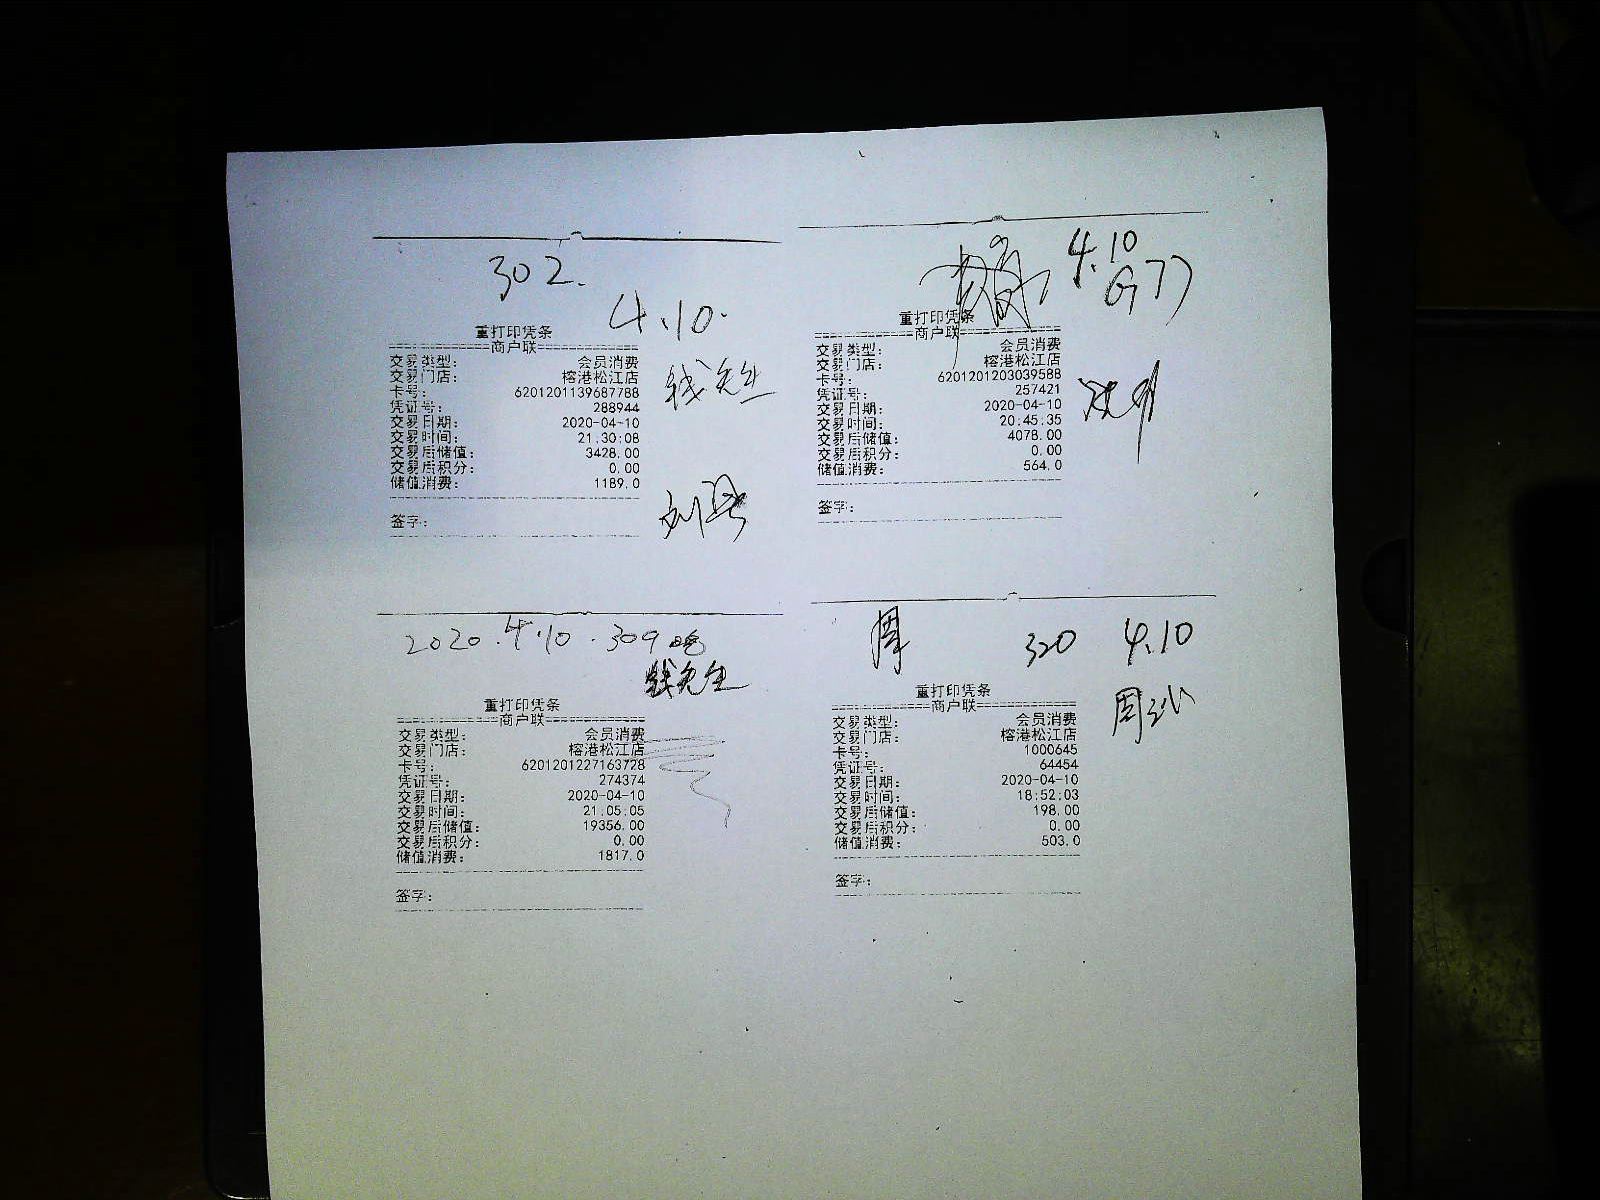 302.
4.10.
重打印凭条
==============商户联==============
交易类型： 会员消费
交易门店： 榕港松江店
卡号： 6201201139687788
凭证号： 288944
交易日期： 2020-04-10
交易时间： 21:30:08
交易后储值： 3428.00
交易后积分： 0.00
储值消费： 1189.0
钱先生
签字：
4.10
G77
重打印凭条
==============商户联==============
交易类型： 会员消费
交易门店： 榕港松江店
卡号： 6201201203039588
凭证号： 257421
交易日期： 2020-04-10
交易时间： 20:45:35
交易后储值： 4078.00
交易后积分： 0.00
储值消费： 564.0
签字：
2020.4.10.309
钱先生
重打印凭条
==============商户联==============
交易类型： 会员消费
交易门店： 榕港松江店
卡号： 6201201227163728
凭证号： 274374
交易日期： 2020-04-10
交易时间： 21:05:05
交易后储值： 19356.00
交易后积分： 0.00
储值消费： 1817.0
签字：
320 4.10
重打印凭条
==============商户联==============
交易类型： 会员消费
交易门店： 榕港松江店
卡号： 1000645
凭证号： 64454
交易日期： 2020-04-10
交易时间： 18:52:03
交易后储值： 198.00
交易后积分： 0.00
储值消费： 503.0
签字：